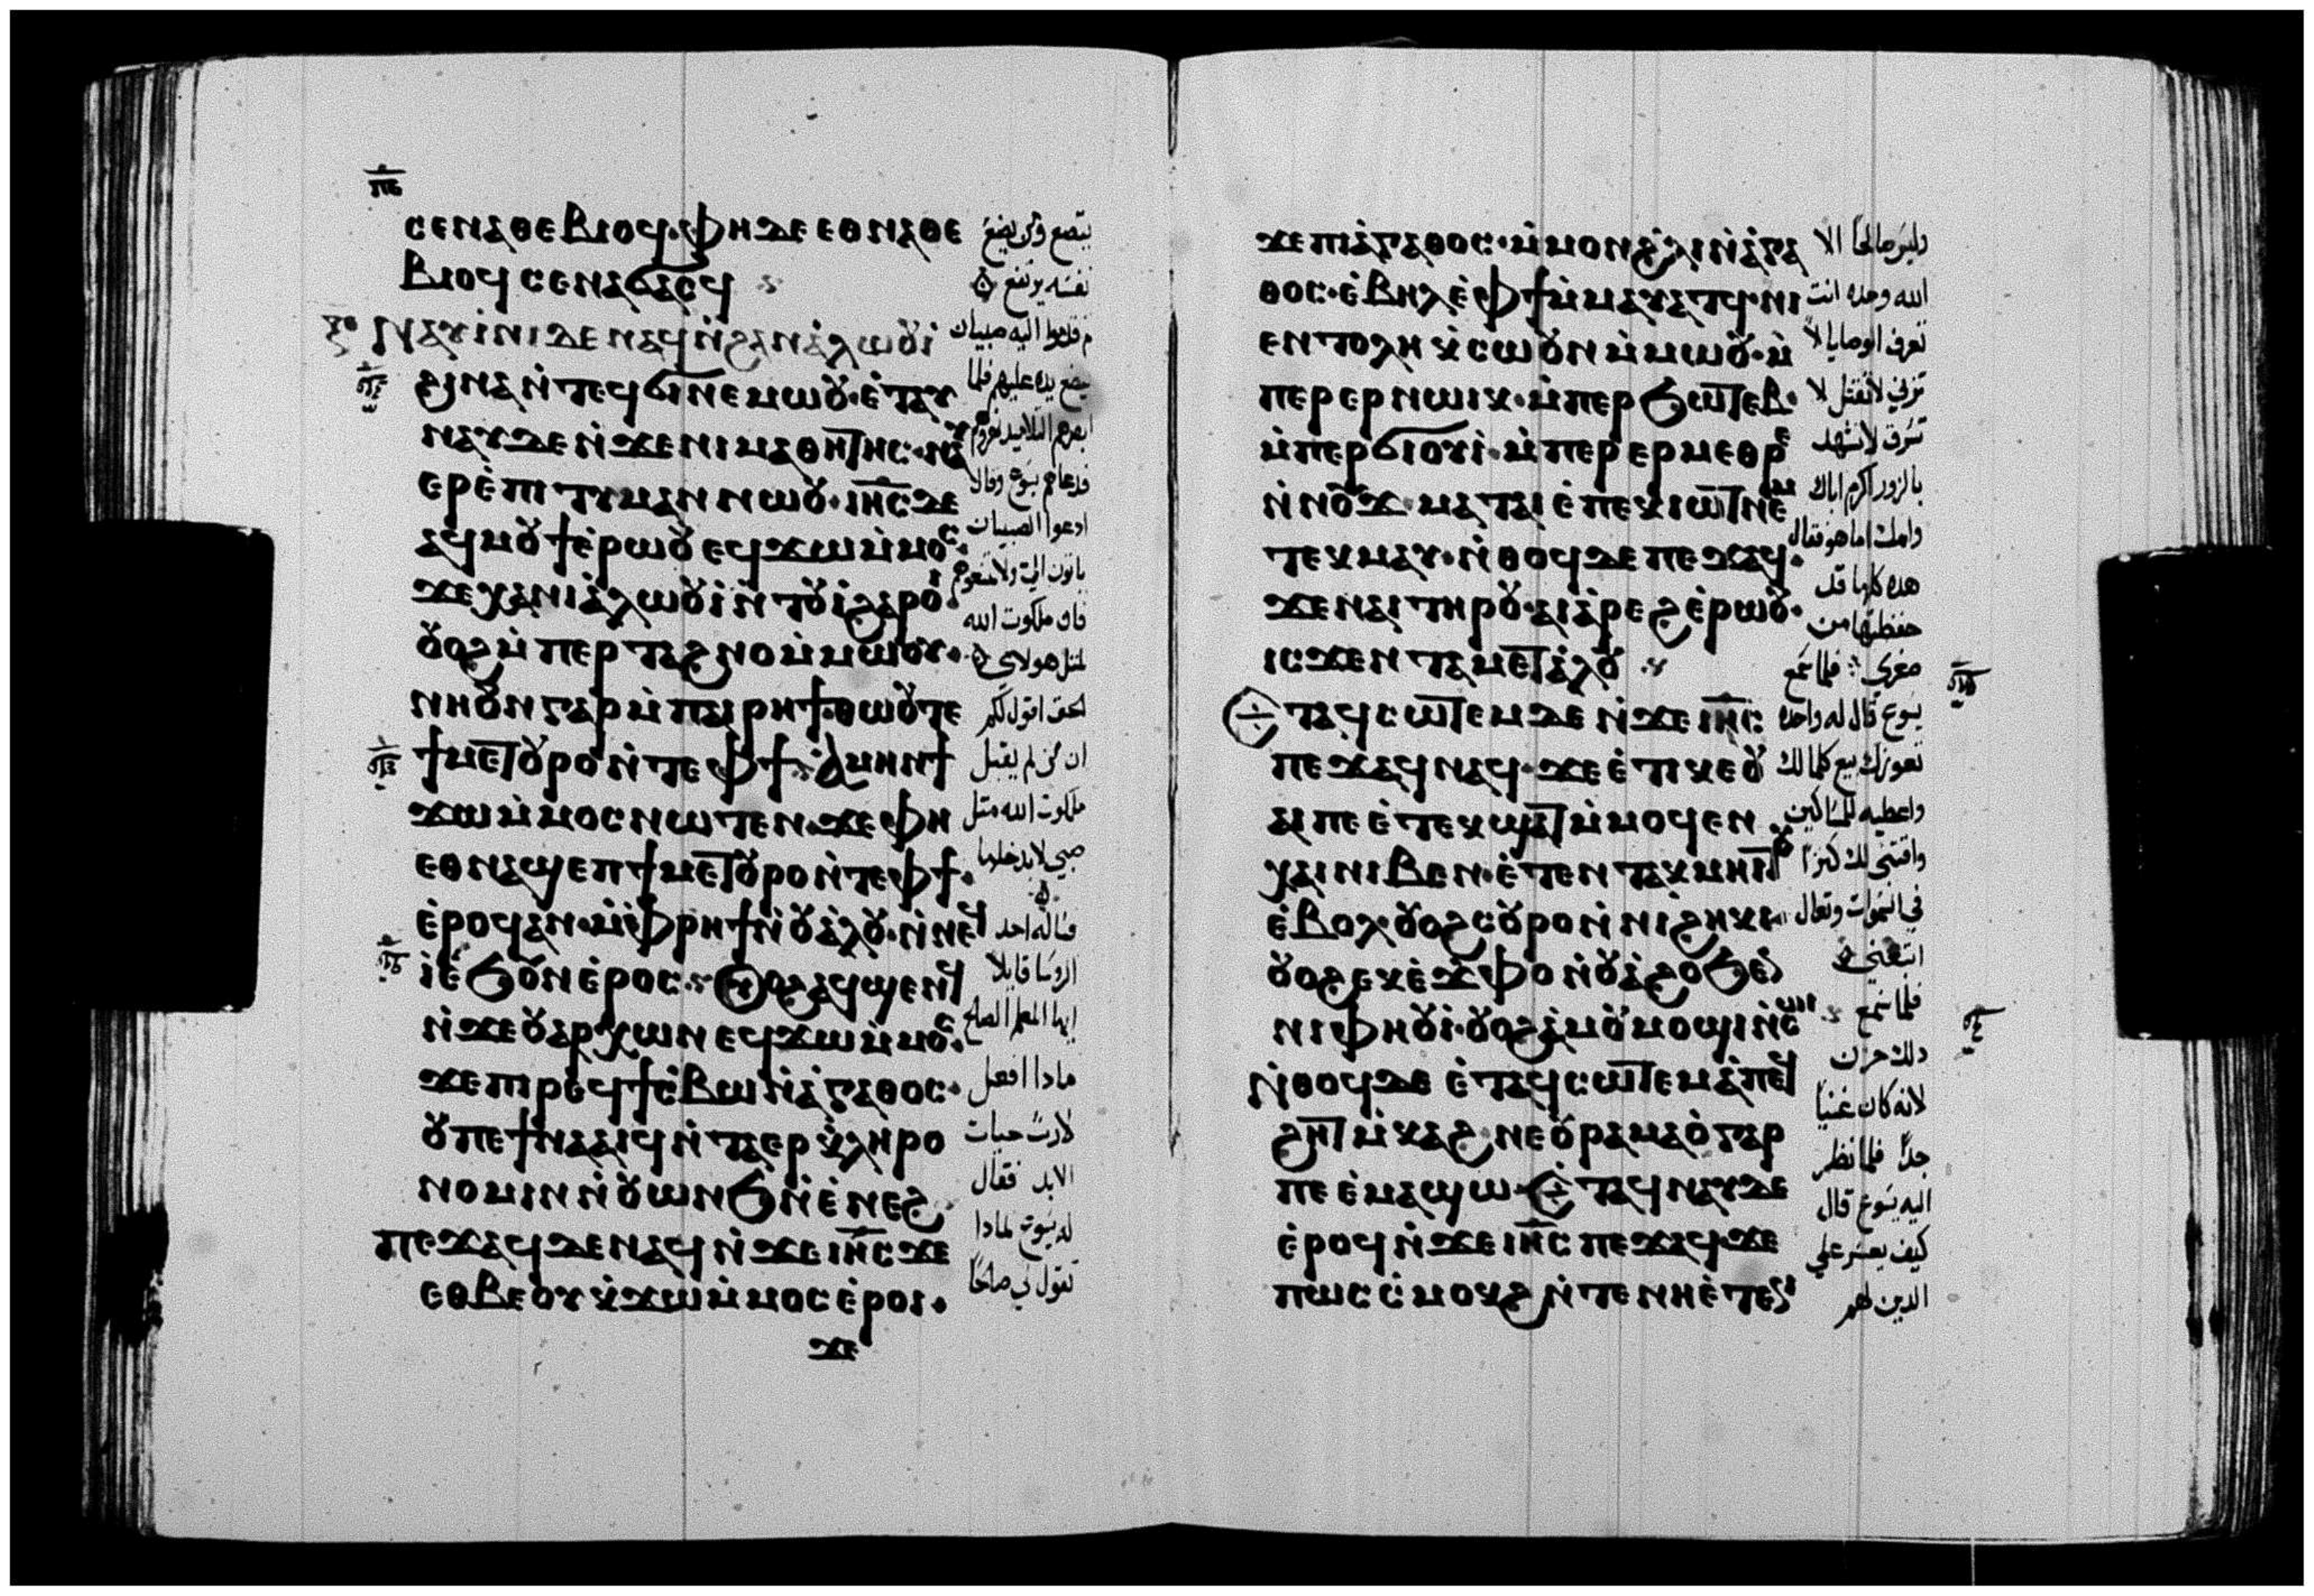 ⲥⲉⲛⲁⲑⲉⲃⲓⲟϥ · ⲫⲏ ⲇⲉ ⲉⲑⲛⲁⲑⲉ
ⲃⲓⲟϥ ⲥⲉⲛⲁϭⲁⲥϥ
ⲛⲁⲩⲓ̀ⲛⲓ ⲇⲉ ⲛⲁϥ ⲛ̀ϩⲁⲛⲁ̀ⲗⲱⲟⲩⲓ̀
ϩⲓⲛⲁ ⲛ̀ⲧⲉϥϭⲓ ⲛⲉⲙⲱⲟⲩ · ⲉ̀ⲧⲁⲩ
ⲛⲁⲩ ⲇⲉ ⲛ̀ϫⲉ ⲛⲓⲙⲁⲑⲏⲧⲏⲥ · ⲛⲁⲩ
ⲉⲣⲉ̀ⲡⲓⲧⲓⲙⲁⲛ ⲛⲱⲟⲩ · ⲓⲏ̅ⲥ̅ ⲇⲉ
ⲁϥⲙⲟⲩϯ ⲉ̀ⲣⲱⲟⲩ ⲉϥϫⲱ ⲙ̀ⲙⲟⲥ ·
ϫⲉ ⲭⲁ ⲛⲓⲁ̀ⲗⲱⲟⲩⲓ̀ ⲛ̀ⲧⲟⲩⲓ̀ ϩⲁⲣⲟⲓ ·
ⲟⲩⲟϩ ⲙ̀ⲡⲉⲣⲧⲁϩⲛⲟ ⲙ̀ⲙⲱⲟⲩ ·
ⲛⲏ ⲟⲩⲛ ⲅⲁⲣ ⲙ̀ⲡⲁⲓⲣⲏϯ · ⲑⲱⲟⲩ ⲧⲉ
ϯⲙⲉⲧⲟⲩⲣⲟ ⲛ̀ⲧⲉ ⲫϯ · ⲁ̀ⲙⲏⲛ ϯ
ϫⲱ ⲙ̀ⲙⲟⲥ ⲛⲱⲧⲉⲛ · ϫⲉ ⲫⲏ
ⲉⲑⲛⲁϣⲉⲡ ϯⲙⲉⲧⲟⲩⲣⲟ ⲛ̀ⲧⲉ ⲫϯ ·
ⲉ̀ⲣⲟϥ ⲁⲛ · ⲙ̀ⲫⲣⲏϯ ⲛ̀ⲟⲩⲁ̀ⲗⲟⲩ · ⲛ̀ⲛⲉϥ
ⲓ̀ ⲉ̀ϧⲟⲩⲛ ⲉ̀ⲣⲟⲥ · ⲟⲩⲟϩ ⲁϥϣⲉⲛϥ
ⲛ̀ϫⲉ ⲟⲩⲁⲣⲭⲱⲛ ⲉϥϫⲱ ⲙ̀ⲙⲟⲥ ·
ϫⲉ ⲡⲓⲣⲉϥϯⲥ̀ⲃⲱ ⲛ̀ⲁ̀ⲅⲁⲑⲟⲥ ·
ⲟⲩ ⲡⲉϯⲛⲁⲁⲓϥ ⲛ̀ⲧⲁⲉⲣⲕ̀ⲗⲏⲣⲟ
ⲛⲟⲙⲓⲛ ⲛ̀ⲟⲩⲱⲛϧ ⲛ̀ⲉ̀ⲛⲉϩ
ⲡⲉϫⲁϥ ⲇⲉ ⲛⲁϥ ⲛ̀ϫⲉ ⲓⲏ̅ⲥ̅ ϫⲉ
ⲉⲑⲃⲉⲟⲩ ⲕ̀ϫⲱ ⲙ̀ⲙⲟⲥ ⲉ̀ⲣⲟⲓ ·
ϫⲉ
يتضع ومن يضع
نفسه يرتفع
فقدموا اليه صبيان
يضع يده عليهم فلما
ابصرهم التلاميذ نهروهم
فدعاهم يسوع وقال
ادعوا الصبيان
ياتون الي ولا تمنعوهم
فان ملكوت الله
لمثل هولاي
الحق اقول لكم
ان من لم يقبل
ملكوت الله مثل
صبي لا يدخلها
فساله احد
الروسا قايلا
ايها المعلم الصالح
مادا افعل
لارث حيات
الابد فقال
له يسوع لمادا
تقول لي صالحا
ϫⲉ ⲡⲓⲁ̀ⲅⲁⲑⲟⲥ · ⲙ̀ⲙⲟⲛ ϩ̀ⲗⲓ ⲛ̀ⲁ̀ⲅⲁ
ⲑⲟⲥ · ⲉ̀ⲃⲏⲗ ⲉ̀ⲫϯ ⲙ̀ⲙⲁⲩⲁⲧϥ · ⲛⲓ
ⲉⲛⲧⲟⲗⲏ ⲕ̀ⲥⲱⲟⲩⲛ ⲙ̀ⲙⲱⲟⲩ · ⲙ̀
ⲡⲉⲣⲉⲣⲛⲱⲓⲕ · ⲙ̀ⲡⲉⲣϧⲱⲧⲉⲃ ·
ⲙ̀ⲡⲉⲣϭⲓⲟⲩⲓ̀ · ⲙ̀ⲡⲉⲣⲉⲣⲙⲉⲑⲣⲉ
ⲛ̀ⲛⲟⲩϫ · ⲙⲁⲧⲁⲓⲉ̀ ⲡⲉⲕⲓⲱⲧ ⲛⲉⲙ
ⲧⲉⲕⲙⲁⲩ · ⲛ̀ⲑⲟϥ ⲇⲉ ⲡⲉϫⲁϥ ·
ϫⲉ ⲛⲁⲓ ⲧⲏⲣⲟⲩ · ⲁⲓⲁ̀ⲣⲉϩ ⲉ̀ⲣⲱⲟⲩ ·
ⲓⲥϫⲉⲛ ⲧⲁⲙⲉⲧⲁ̀ⲗⲟⲩ
ⲉⲧⲁϥⲥⲱⲧⲉⲙ ⲇⲉ ⲛ̀ϫⲉ ⲓⲏ̅ⲥ̅
ⲡⲉϫⲁϥ ⲛⲁϥ · ϫⲉ ⲉ̀ⲧⲓ ⲕⲉⲟⲩ
ⲁⲓ ⲡⲉ ⲉ̀ⲧⲉⲕϣⲁⲧ ⲙ̀ⲙⲟϥ ⲉⲛ
ⲭⲁⲓ ⲛⲓⲃⲉⲛ · ⲉ̀ⲧⲉⲛⲧⲁⲕ ⲙⲏⲓⲧⲟⲩ
ⲉ̀ⲃⲟⲗ · ⲟⲩⲟϩ ⲥⲟⲩⲣⲟ ⲛ̀ⲛⲓϩⲏⲕⲓ
ⲟⲩⲟϩ ⲉⲕⲉ̀ϫ̀ⲫⲟ ⲛ̀ⲟⲩⲁ̀ϩⲟ ϧⲉⲛ
ⲛⲓⲫⲏⲟⲩⲓ̀ · ⲟⲩⲟϩ ⲁ̀ⲙⲟⲩ ⲙⲟϣⲓ ⲛ̀ⲥⲱⲓ
ⲛ̀ⲑⲟϥ ⲇⲉ ⲉ̀ⲧⲁϥⲥⲱⲧⲉⲙ ⲁ̀ ⲡⲉϥ
ϩⲏⲧ ⲙ̀ⲕⲁϩ · ⲛⲉ ⲟⲩⲣⲁⲙⲁⲟ̀ ⲅⲁⲣ
ⲡⲉ ⲉ̀ⲙⲁϣⲱ · ⲉ̀ⲧⲁϥⲛⲁⲩ ⲇⲉ
ⲉ̀ⲣⲟϥ ⲛ̀ϫⲉ ⲓⲏ̅ⲥ̅ ⲡⲉϫⲁϥ · ϫⲉ
ⲡⲱⲥ ⲥ̀ⲙⲟⲕϩ ⲛ̀ⲧⲉ ⲛⲏ ⲉ̀ⲧⲉ
وليس صالحا الا
الله وحده انت
تعرف الوصايا لا
تزني لا تقتل لا
تسرق لا تشهد
بالزور اكرم اباك
وامك اما هو فقال
هذه كلها قد
حفظتها من
صغري فلما سمع
يسوع قال له واحده
تعوزك بيع كلما لك
واعطيه للمساكين
واقتني لك كنزا
في السموات وتعال
اتبعني
فلما سمع
ذلك حزن
لانه كان غنيا
جدا فلما نظر
اليه يسوع قال
كيف يعسر علي
الدين لهم